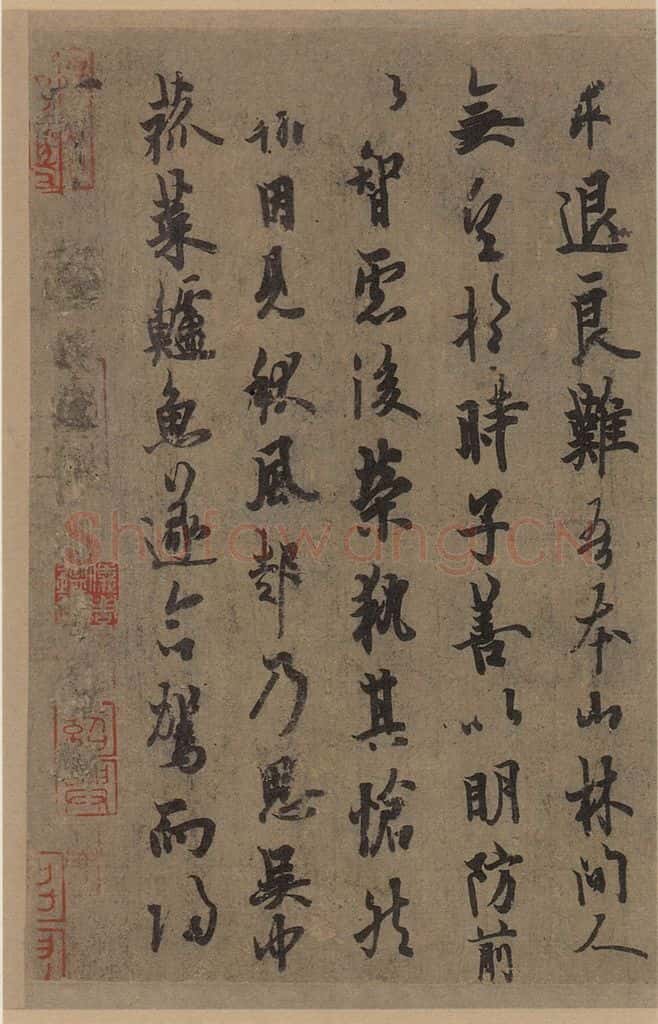 求退良難吾本山林間人
無望於時子善以明防前
以智慮後榮執其愴然
翰因見秋風起乃思吳中
菰菜鱸魚遂命駕而歸
Shufawang.CN